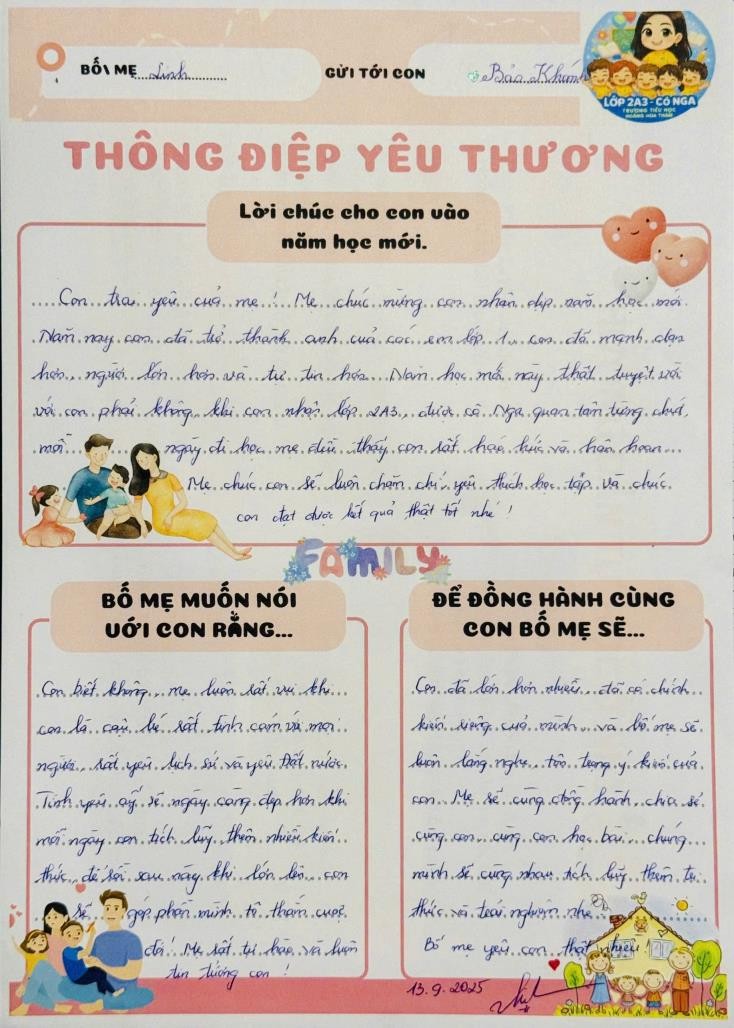 BỐ\ MẸ Linh
GỬI TỚI CON Bảo Khánh
LỚP 2A3 - CÔ NGA
TRƯỜNG TIỂU HỌC
HOÀNG HOA THÁM
THÔNG ĐIỆP YÊU THƯƠNG
Lời chúc cho con vào
năm học mới.
Con trai yêu của mẹ! Mẹ chúc mừng con nhân dịp năm học mới
Năm nay con đã trở thành anh của các em lớp 1, con đã mạnh dạn
hơn, người lớn hơn và tự tin hơn. Năm học mới này thật tuyệt vời
với con phải không, khi con nhận lớp 2A3, được cô Nga quan tâm từng chút,
mỗi ngày đi học mẹ đều thấy con rất háo hức và hân hoan...
Mẹ chúc con sẽ luôn chăm chỉ, yêu thích học tập và chúc
con đạt được kết quả thật tốt nhé!
FAMILY
BỐ MẸ MUỐN NÓI
VỚI CON RẰNG...
Con biết không, mẹ luôn rất vui khi
con là cậu bé rất tình cảm với mọi
người, rất yêu lịch sử và yêu Đất nước.
Tình yêu ấy sẽ ngày càng đẹp hơn khi
mỗi ngày con tích lũy thêm nhiều kiến
thức, để rồi sau này khi lớn lên con
sẽ góp phần mình tô thắm cuộc
đời! Mẹ rất tự hào và luôn
tin tưởng con!
ĐỂ ĐỒNG HÀNH CÙNG
CON BỐ MẸ SẼ...
Con đã lớn hơn nhiều, đã có chính
kiến riêng của mình, và bố mẹ sẽ
luôn lắng nghe, tôn trọng ý kiến của
con. Mẹ sẽ cùng đồng hành, chia sẻ
cùng con, cùng con học bài, chúng
mình sẽ cùng nhau tích lũy thêm tri
thức và trải nghiệm nhé.
Bố mẹ yêu con thật nhiều!
13.9.2025